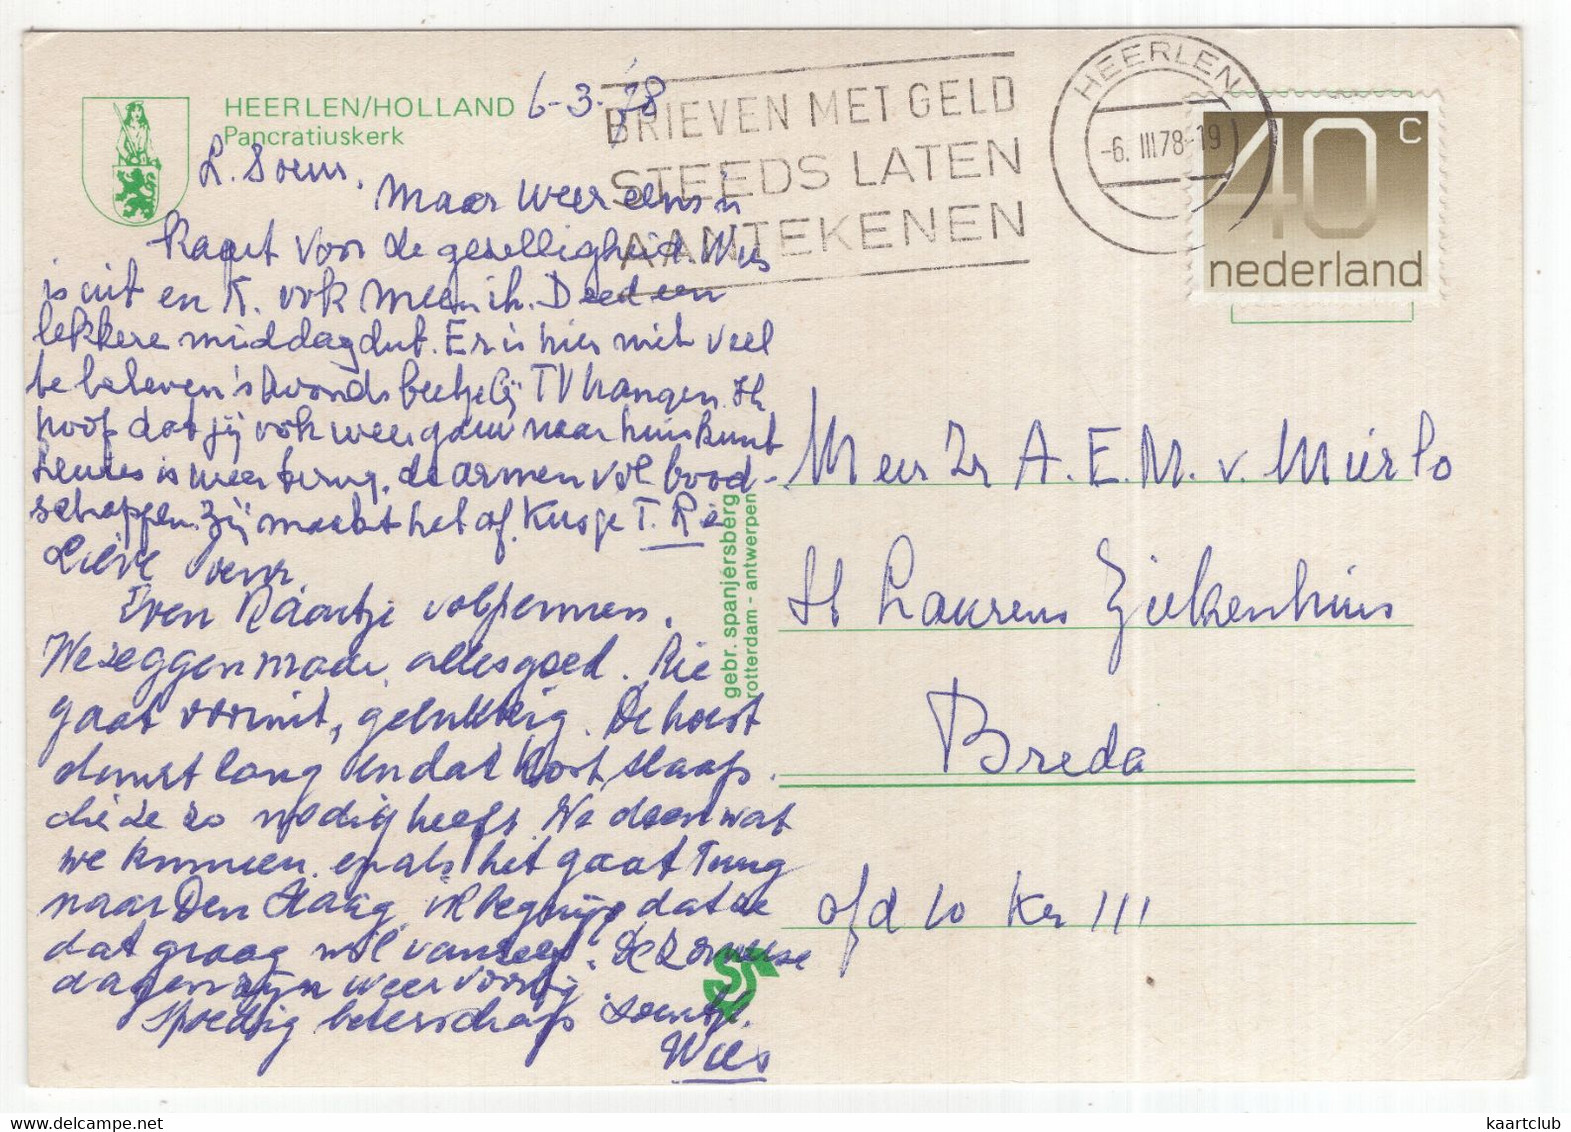 HEERLEN/HOLLAND 6-3-78
Pancratiuskerk
BRIEVEN MET GELD
STEEDS LATEN
AANTEKENEN
HEERLEN
-6. III.78-19
40 c
nederland
L. Soeur,
Maar weer eens 'n
kaart voor de gezelligheid. Wies
is uit en K. ook meen ik. Deed een
lekkere middagdut. Er is hier niet veel
te beleven 's Avonds beetje bij TV hangen. Ik
hoop dat jij ook weer gauw naar huis kunt
is weer terug, de armen vol bood-
schappen. Zij maakt het af. Kusje T. Ri
Lieve
Even kaartje volpennen.
We zeggen maar, alles goed. Rie
gaat vooruit, gelukkig. De hoest
duurt lang en dat kost slaap.
die ze zo nodig heeft. We doen wat
we kunnen. en als het gaat terug
naar Den Haag, ik begrijp dat ze
dat graag wil. De
dagen zijn weer voorbij
Spoedig beterschap
Wies
gebr. spanjersberg
rotterdam - antwerpen
Mevr Zr A. E. M. v. Mierlo
St Laurens Ziekenhuis
Breda
afd 10 Kr 111
kaartclub